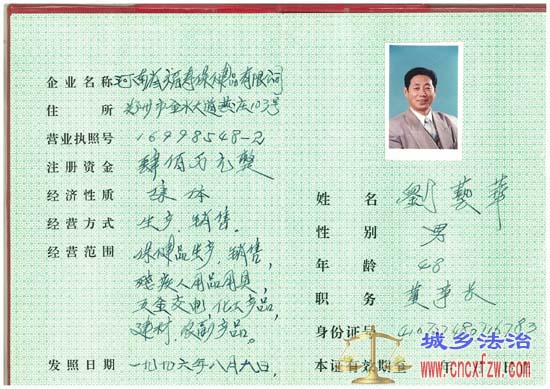 企业名称
住 所 郑州市金水大道燕庄103号
营业执照号 16998548-2
注册资金 肆佰万元整
经济性质 集体
经营方式 生产、销售。
经营范围 保健品生产、销售,
残疾人用品用具,
五金交电,化工产品,
建材,农副产品。
发照日期 一九九六年八月九日
姓 名 劉藝華
性 别 男
年 龄 48
职 务 董事长
身份证号
本证有效期至 年 月
城乡法治
www.cncxfzw.com